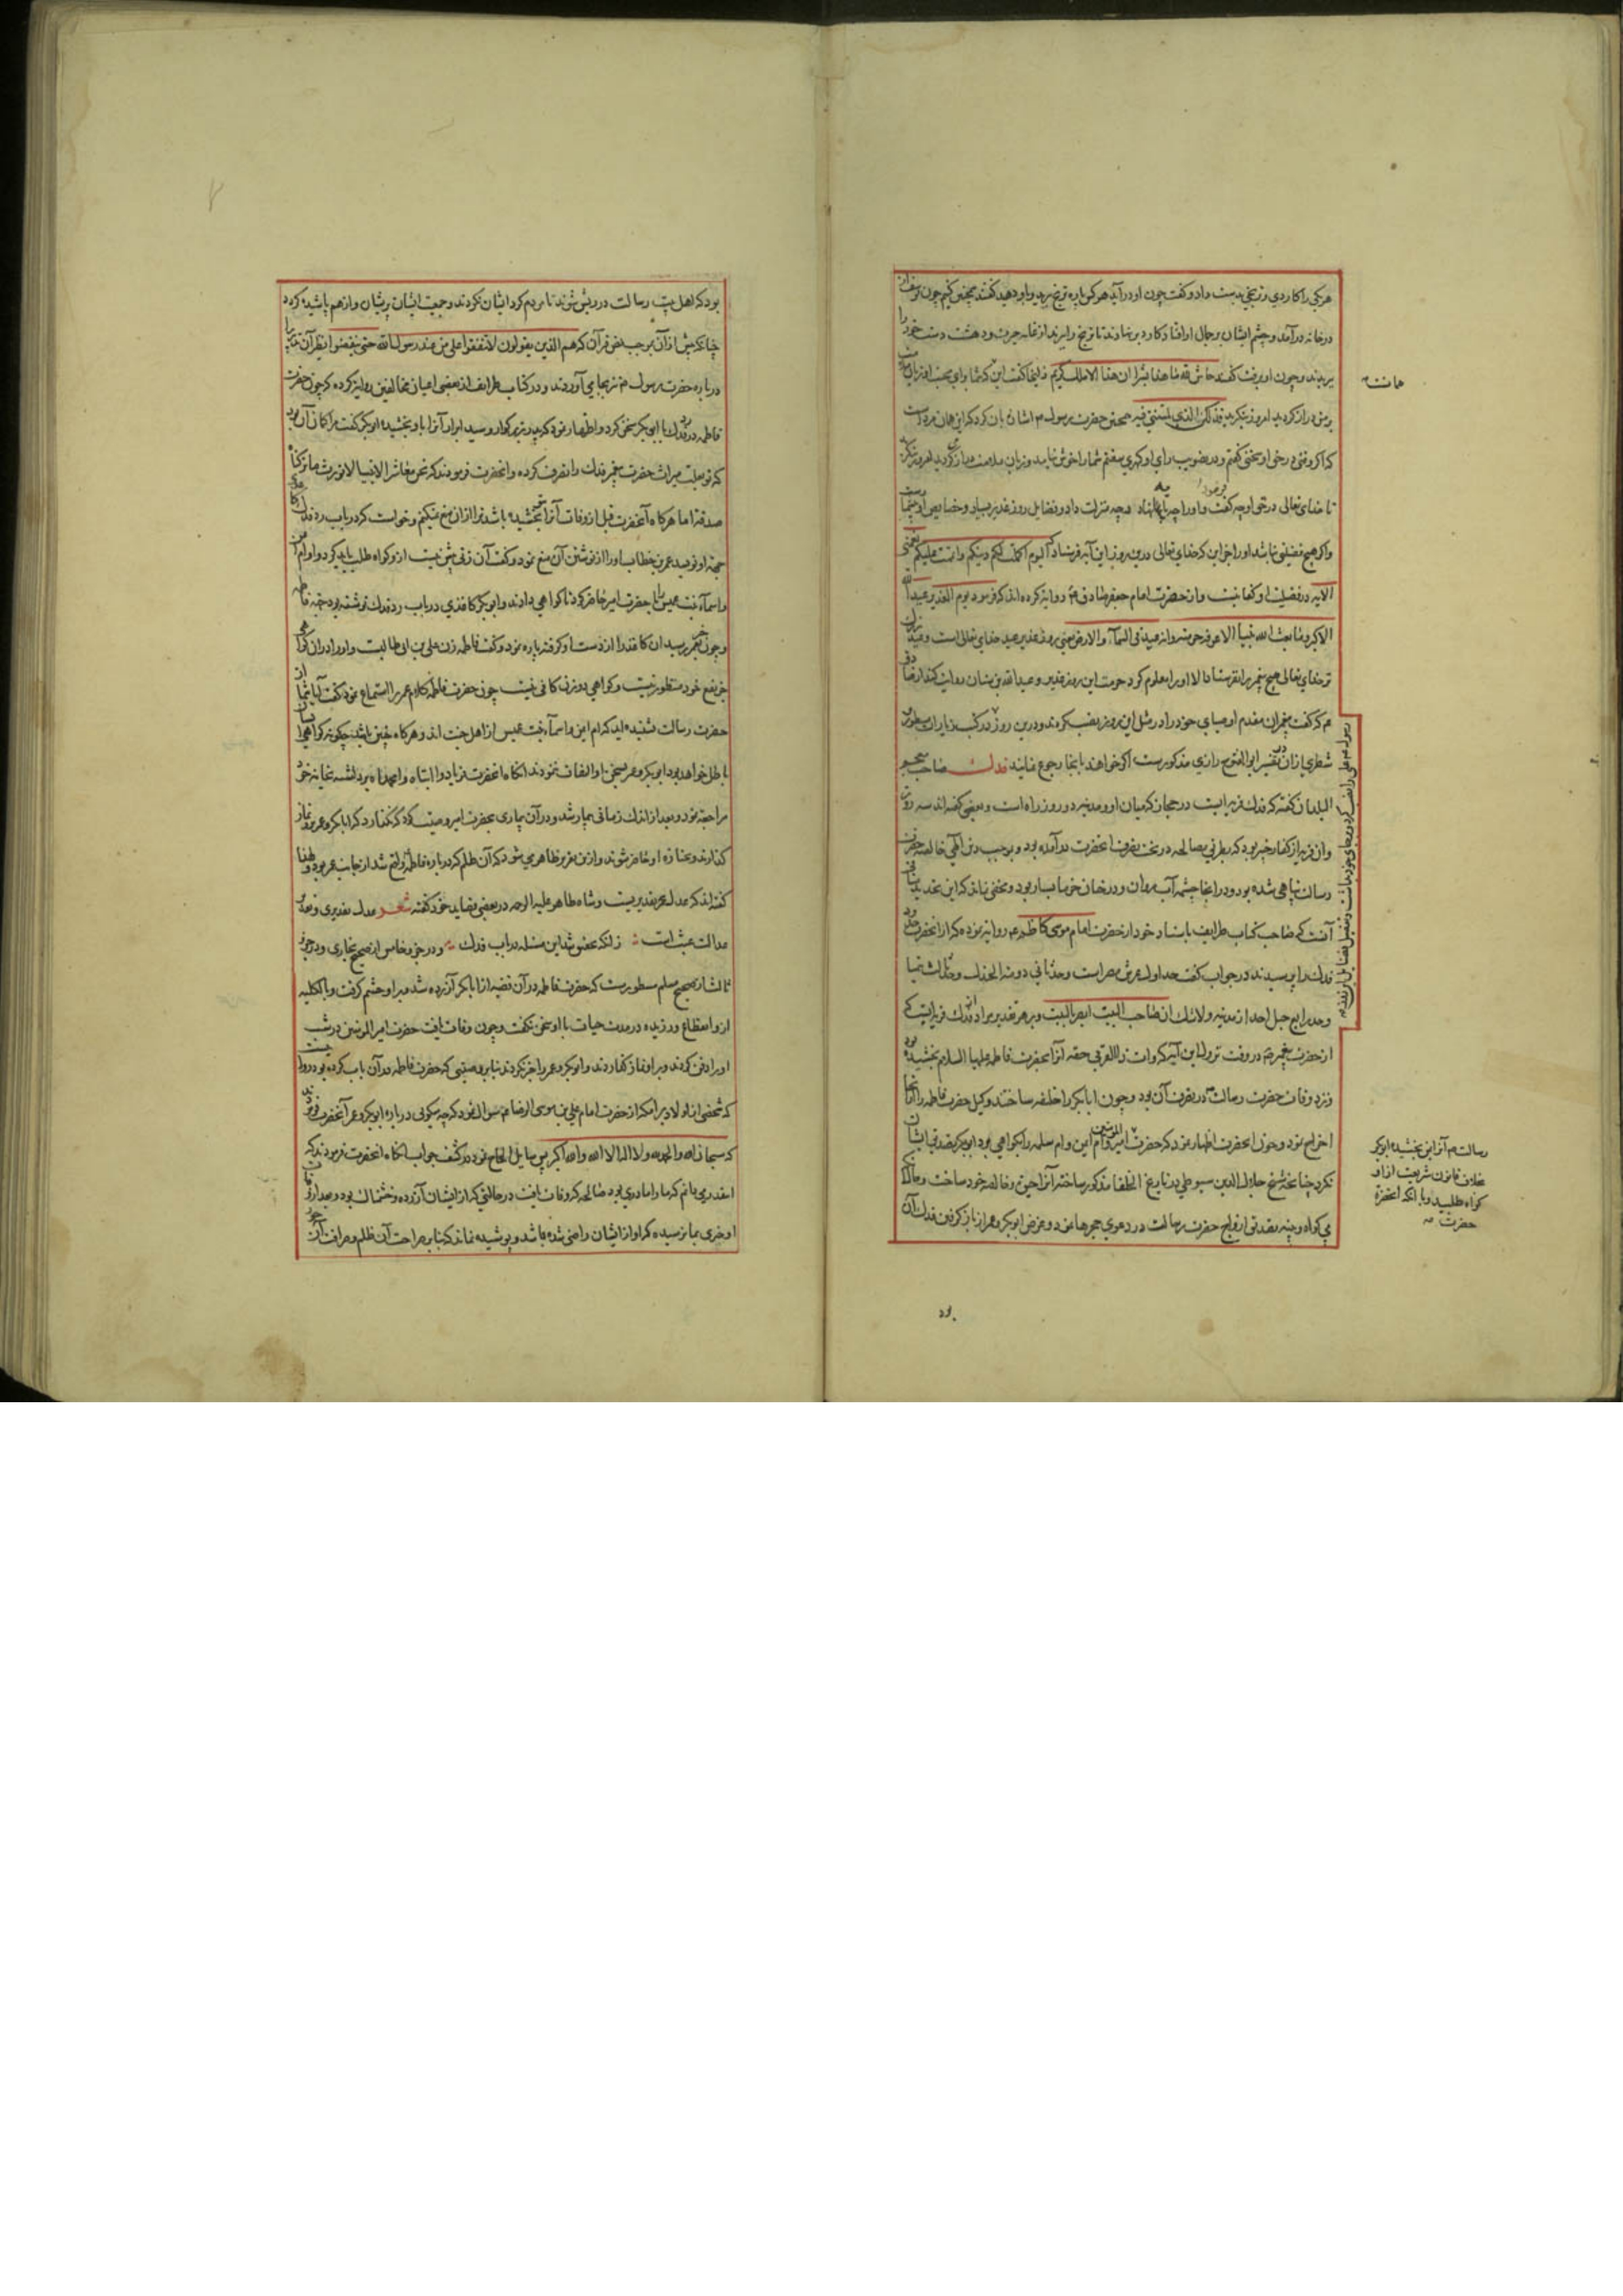 هر یکی را کاردی و ترنجی بدست داد و گفت چون او درآید هر کس پاره ترنج برید و باو دهید گفتند همچنین کنیم چون یوسف از
در خانه درآمد و چشم ایشان بر جمال او افتاد کارد بر نهادند تا ترنج را برند از غایت حیرت و دهشت دست خود را
بریدند و چون او برفت گفتند حاش لله ما هذا بشرا ان هذا الا ملک کریم زلیخا گفت این که شما وای محبت او زبان
بر من دراز کردید امروز بنگرید فذلکن الذی لمتننی فیه همچنین حضرت رسول م اشان بان کرد که این همان مرد است
که اگر وقتی در حق او سخنی گفتم و در تصویب رای او کهری سفتم شما را خوش نیامد و زبان ملامت دراز کردید امروز بنگرید
تا خدای تعالی در حق او چه گفت و او را چه پایها نهاد و چه منزلت داد و فضایل روز غدیر بسیار و خصایص او بیشمار است
و اگر هیچ فضیلتی نباشد او را جز این که خدای تعالی درین روز این آیه فرستاد که الیوم اکملت لکم دینکم و اتممت علیکم نعمتی
الآیه در فضیلت او کفایتست و از حضرت امام جعفر صادق ع روایة کرده اند که فرمود یوم الغدیر عید الله
الاکبر و ما بعث الله نبیا الا عرف حرمته و انه عید فی السماء و الارض یعنی روز غدیر عید خدای تعالی است و عید بزرگ
تر خدای تعالی هیچ پیغمبر را نفرستاد الا او را معلوم کرد حرمت این روز غدیر و عبدالله بن سنان روایت کند از صادق
ع م که گفت پیغمبران مقدم اوصیای خود را در مثل این روز نصب کردند و درین روز در کتب زیارات مسطور
شطری از آن در تفسیر ابوالفتوح رازی مذکورست اگر خواهند بانجا رجوع نمایند فدک صاحب معجم
البلدان گفته که فدک قریه ایست در حجاز که میان او و مدینه دو روز راه است و بعضی گفته اند سه روز
و ان قریه از کفار خیبر بود که بطریق مصالحه در تحت تصرف انحضرت درآمده بود و بموجب وحی الهی خالصه حضرت
رسالت پناهی شده بود و در انجا چشمه آب روان و درختان خرما بسیار بود و مخفی نماند که این تحدید
آنست که صاحب کتاب طرایف باسناد خود از حضرت امام موسی کاظم ع روایة نموده که از انحضرت حدود
فدک را پرسیدند در جواب گفت حد اول عریش مصر است و حد ثانی دومة الجندل و حد ثالث تیما
و حد رابع جبل احد از مدینه و لا شک ان صاحب البیت ابصر بالبیت و بر هر تقدیر مراد از فدک قریه ایست که
از حضرت پیغمبر ص در وقت نزول این آیه که وآت ذا القربی حقه آنرا بحضرت فاطمه علیها السلام بخشیده بود
و نزد وفات حضرت رسالت ص در تصرف آن بود و چون ابابکر را خلیفه ساختند وکیل حضرت فاطمه را از آنجا
اخراج نمود و چون انحضرت اظهار نمود که حضرت امیرالمؤمنین و ام ایمن و ام سلمه را بگواهی بود ابوبکر تصدیق ایشان
نکرد چنانچه شیخ جلال الدین سیوطی در تاریخ الخلفا مذکور ساخته آنرا حق و خالصه خود ساخت و حال آنکه
بی گواه و بینه تصدیق ازواج حضرت رسالت در دعوی حجرها نمود و غرض ابوبکر و عمر از بازگرفتن فدک آن
رسالت م آنرا بمن بخشیده ابوبکر
خلاف قانون شریعت ازاو
گواه طلبید و با انکه انحضرة
حضرت
بود که اهل بیت رسالت درویش شوند تا مردم گرد ایشان نگردند و جمعیت ایشان پریشان و از هم پاشیده گردد
چنانکه پیش از آن بموجب نص قرآن که هم الذین یقولون لا تنفقوا علی من عند رسول الله حتی ینفضوا نظر آن تدبیر را
درباره حضرت رسول م نیز بجا می آوردند و در کتاب طرایف از بعضی اعیان مخالفین روایة کرده که چون حضرت
فاطمه در باب فدک با ابوبکر سخن کرد و اظهار نمود که پدر بزرگوار و سید ابرار آنرا باو بخشیده ابوبکر گفت مرا گمان آن بود
که تو بعلت میراث حضرت پیغمبر فدک را تصرف کرده و انحضرت فرمودند که نحن معاشر الانبیا لا نورث ما ترکناه
صدقة اما هرگاه آنحضرت قبل از وفات آنرا بتو بخشیده باشد ترا از ان منع نمیکنم و خواست که در باب رد فدک کاغذی
بجهة او نویسد عمر بن خطاب او را از نوشتن آن منع نمود و گفت آن زنی بیش نیست ازو گواه طلب باید کرد و او ام ایمن
و اسماء بنت عمیس را با حضرت امیر حاضر کرد تا گواهی دادند و ابوبکر کاغذی در باب رد فدک نوشته بود بجهة فاطمه
و چون خبر بعمر رسید ان کاغذ را از دست او گرفته پاره نمود و گفت فاطمه زن علی بن ابی طالبست و او را در ان گواهی
جز نفع خود منظور نیست و گواهی دو زن کافی نیست چون حضرت فاطمه کلام عمر را استماع نمود گفت آیا شما از
حضرت رسالت نشنیده اید که ام ایمن و اسماء بنت عمیس از اهل جنت اند و هرگاه چنین باشد چگونه گواهی ایشان
باطل خواهد بود ابوبکر و عمر بسخن او التفات ننمودند انگاه انحضرت فریاد وا ابتاه و وا محمداه برداشته بخانه خود
مراجعة نمود و بعد از اندک زمانی بیمار شد و در آن بیماری بحضرت امیر وصیت کرد که نگذارد که ابابکر و عمر برو نماز
گذارند و بجنازه او حاضر شوند و ازین تقریر ظاهر می شود که آن ظلم که درباره فاطمه واقع شد از جانب عمر بود و لهذا
گفته اند که عدل عمر تقدیریست و شاه طاهر علیه الرحمه در بعضی قصاید خود گفته شعر عدل تقدیری و بعد
عدالت عبث است زانکه عضو شد این مسئله در باب فدک و در جزو خامس از صحیح بخاری و در جزو
ثالث از صحیح مسلم مسطورست که حضرت فاطمه در آن قضیه از ابابکر آزرده شد و بر او خشم گرفت و بالکلیه
ازو انقطاع ورزیده در مدت حیات با او سخن نگفت و چون وفات یافت حضرت امیرالمومنین در شب
او را دفن کردند و بر او نماز گذاردند و ابوبکر و عمر را خبر نکردند بنابر وصیتی که حضرت فاطمه در آن باب کرده بود
که شخصی از اولاد برامکه از حضرت امام علی بن موسی الرضا م سوال نمود که چه میگوئی درباره ابوبکر و عمر آنحضرت فرمودند
که سبحان الله و الحمد لله و لا اله الا الله و الله اکبر پس سایل الحاح نمود در کشف جواب انگاه انحضرت فرمودند که
اینقدر می دانم که ما را مادری بود صالحه که وفات یافت در حالتی که از ایشان آزرده و خشمناک بود و بعد از وفات
او خبری بما نرسیده که او از ایشان راضی شده باشد و پوشیده نماند که بنابر صراحت آن ظلم و صرافت آن